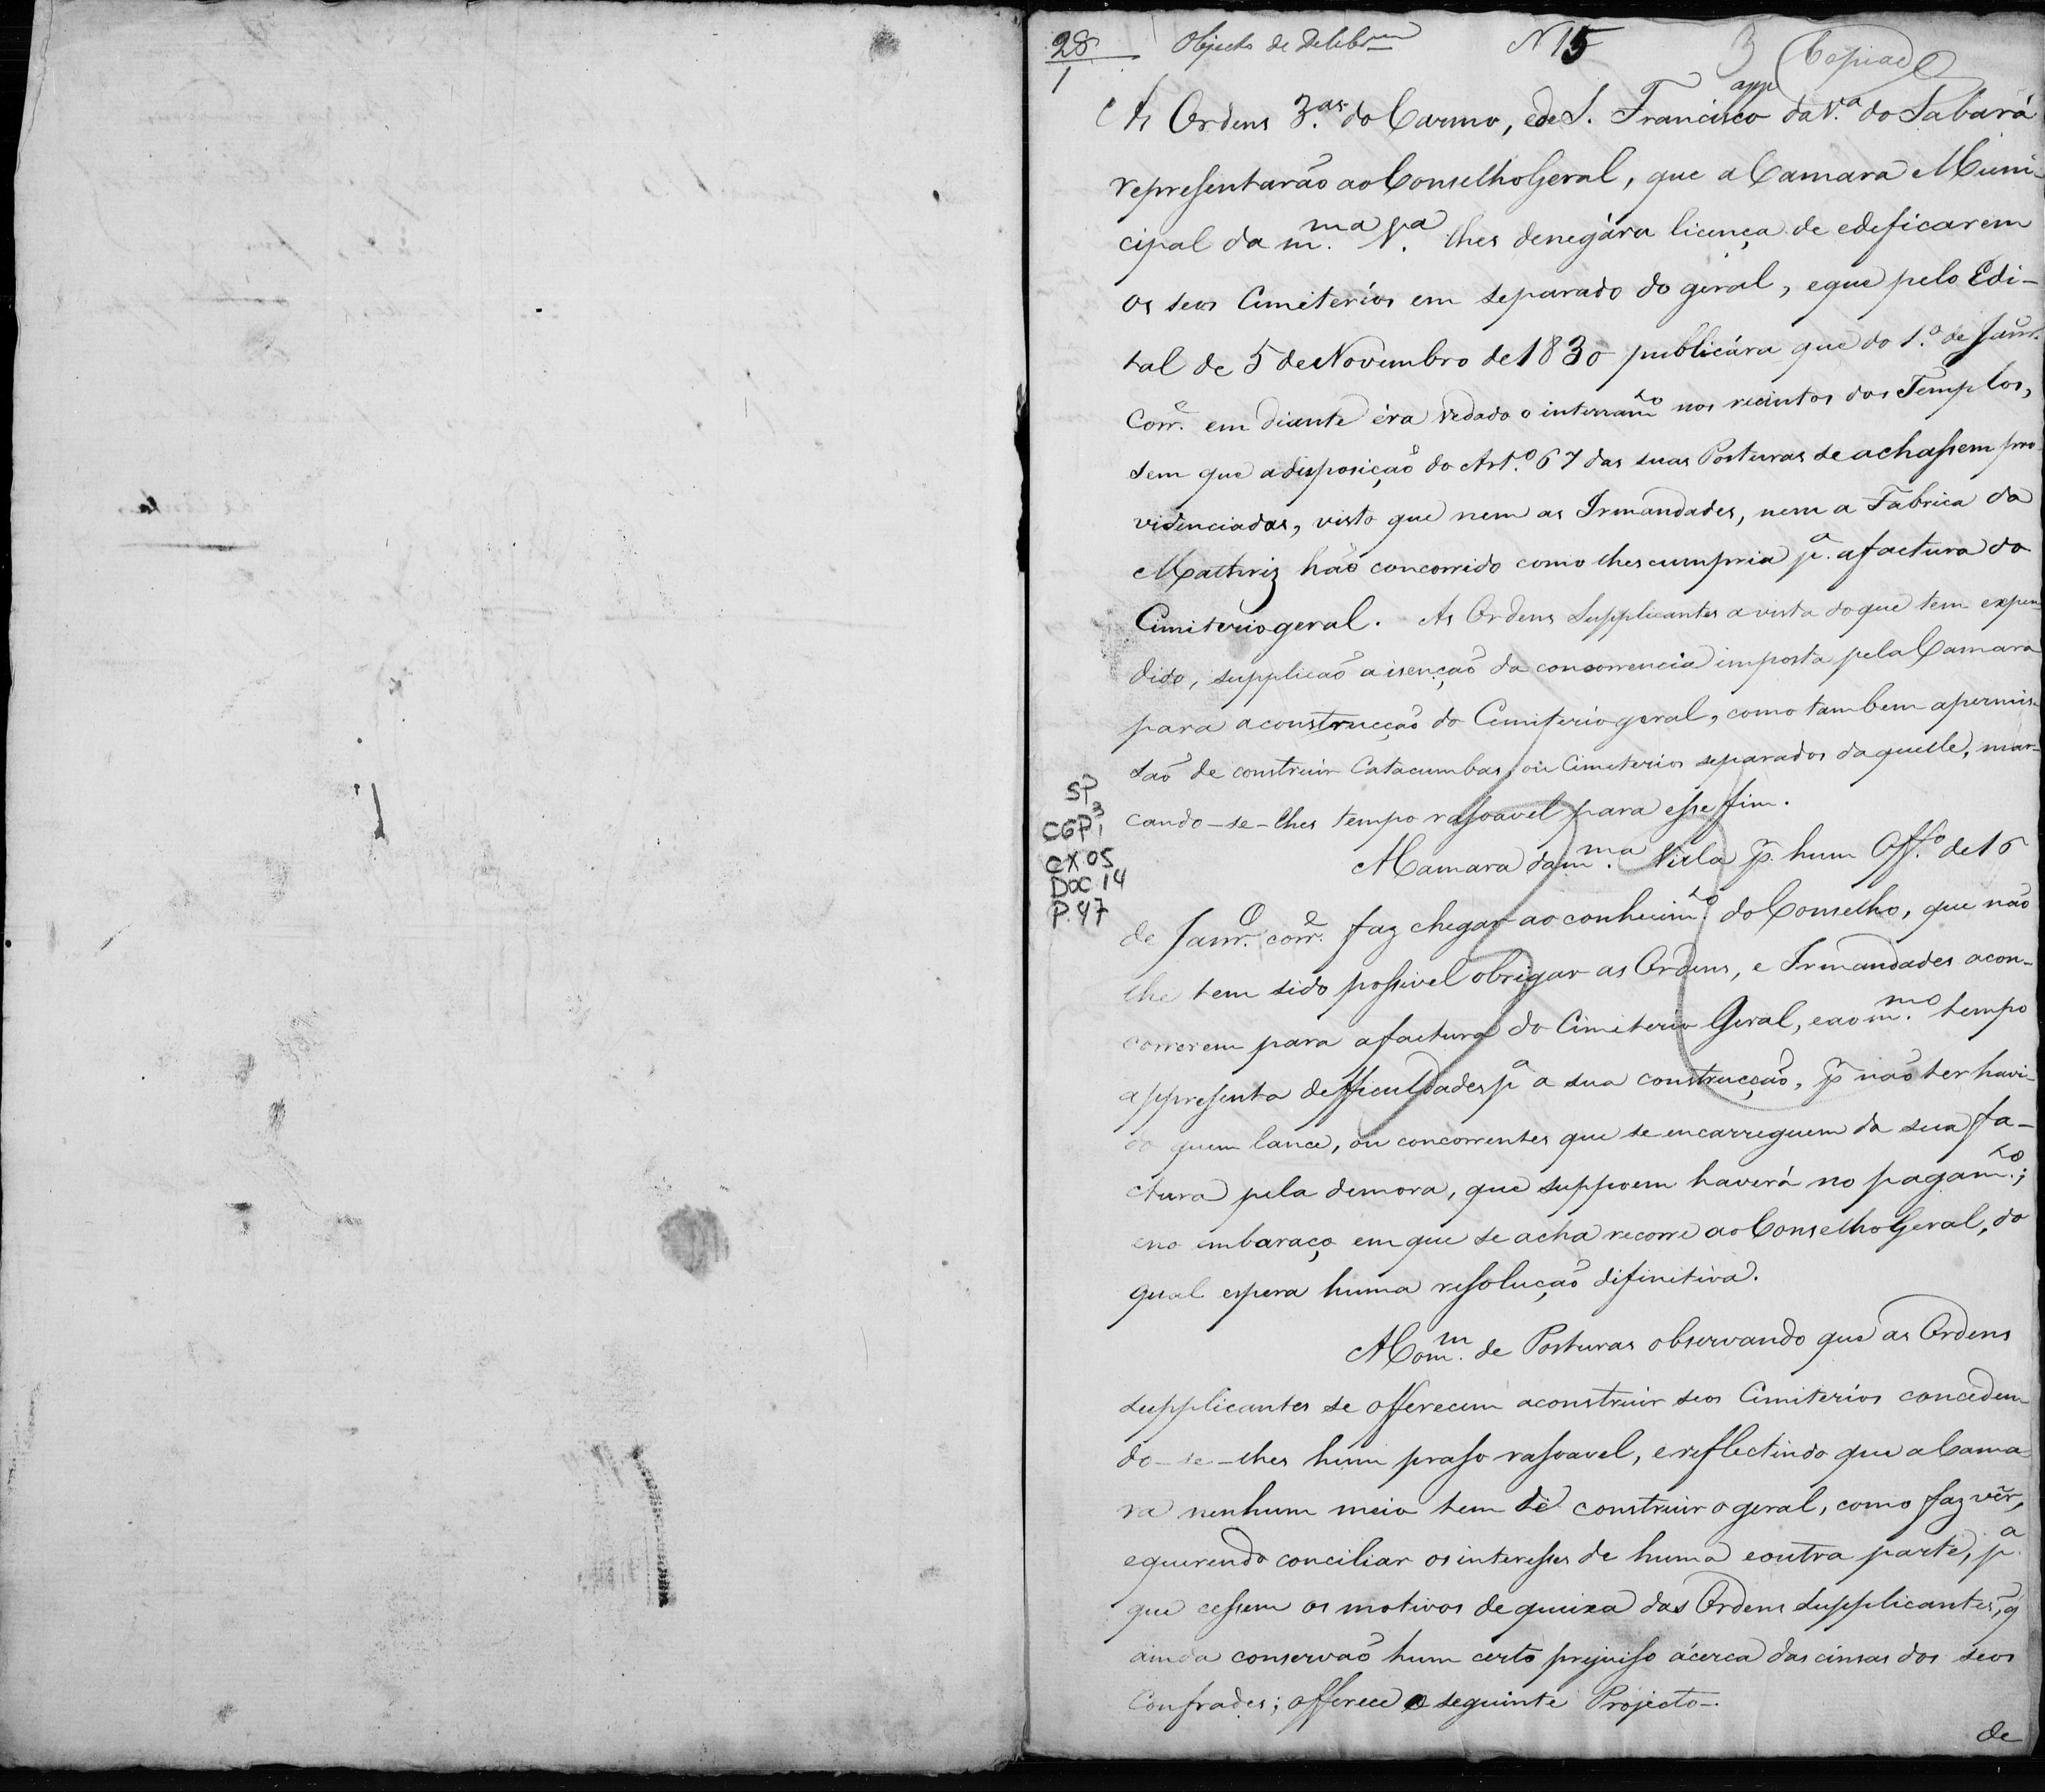 28/1 Objecto de Delibm N 15 3 Copiado
app
As Ordens 3.as do Carmo, e de S. Francisco da V.a do Sabará
representarão ao Conselho Geral, que a Camara Muni-
cipal da m.ma V.a lhes denegára licença de edeficarem
os seos Cimiterios em separado do geral, e que pelo Edi-
tal de 5 de Novembro de 1830 publicára que do 1.o de Janr.o
Corr.e em diante éra vedado o interram.to nos recintos dos Templos,
sem que a disposição do Art.o 67 das suas Posturas se achassem pro
videnciadas, visto que nem as Irmandades, nem a Fabrica da
Mathriz hão concorrido como lhes cumpria p.a a factura do
Cimiterio geral. As Ordens Supplicantes a vista do que tem expen
dido, supplicão a isenção da concorrencia imposta pela Camara
para a construcção do Cimiterio geral, como tambem a permis-
são de construir Catacumbas, ou Cimeterios separados daquelle, mar-
cando-se-lhes tempo rasoavel para esse fim.
A Camara da m.ma Villa p.r hum Off.o de 16
de Janr.o corr.e faz chegar ao conhecim.to do Conselho, que não
lhe tem sido possivel obrigar as Ordens, e Irmandades a con-
correrem para a factura do Cimiterio Geral, e ao m.mo tempo
appresenta defficuldades p.a a sua construcção, p.r não ter havi-
do quem lance, ou concorrentes que se encarreguem da sua fa-
ctura pela demora, que suppoem haverá no pagam.to;
e no embaraço em que se acha recorre ao Conselho Geral, do
qual espera huma resolução difinitiva.
A Com.m de Posturas observando que as Ordens
supplicantes se offerecem a construir seos Cimiterios conceden
do-se-lhes hum praso rasoavel, e reflectindo que a Cama
ra nenhum meio tem de construir o geral, como faz vêr,
e querendo conciliar os interesses de huma e outra parte, p.a
que cessem os motivos de queixa das Ordens supplicantes, q
ainda conservão hum certo prejuiso ácerca das cinsas dos seos
Confrades; offerece o seguinte Projecto-.
de
SP
CGP 3 1
CX 05
DOC. 14
P. 47